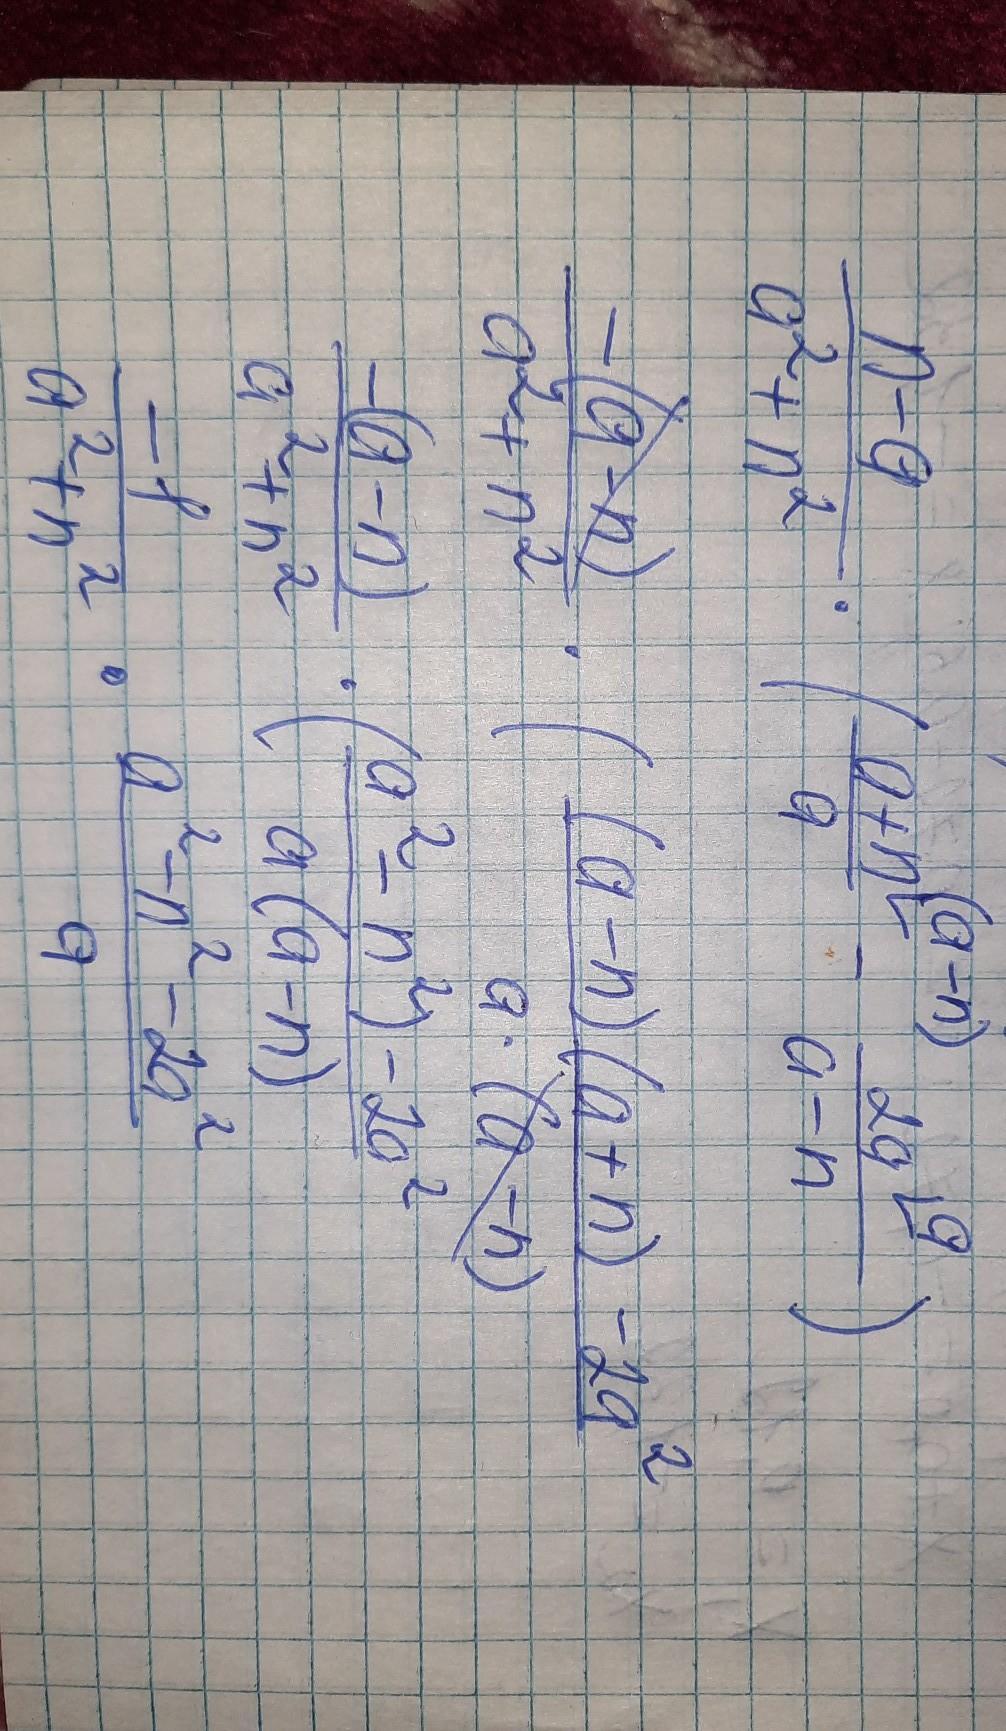 (n-a)/(a²+n²) · ((a+n)/a ⌊(a-n) - 2a/(a-n) ⌊a)
-(a-n)/(a²+n²) · ((a-n)(a+n)-2a²)/(a·(a-n))
-(a-n)/(a²+n²) · ((a²-n²)-2a²)/(a(a-n))
-1/(a²+n²) · (a²-n²-2a²)/a